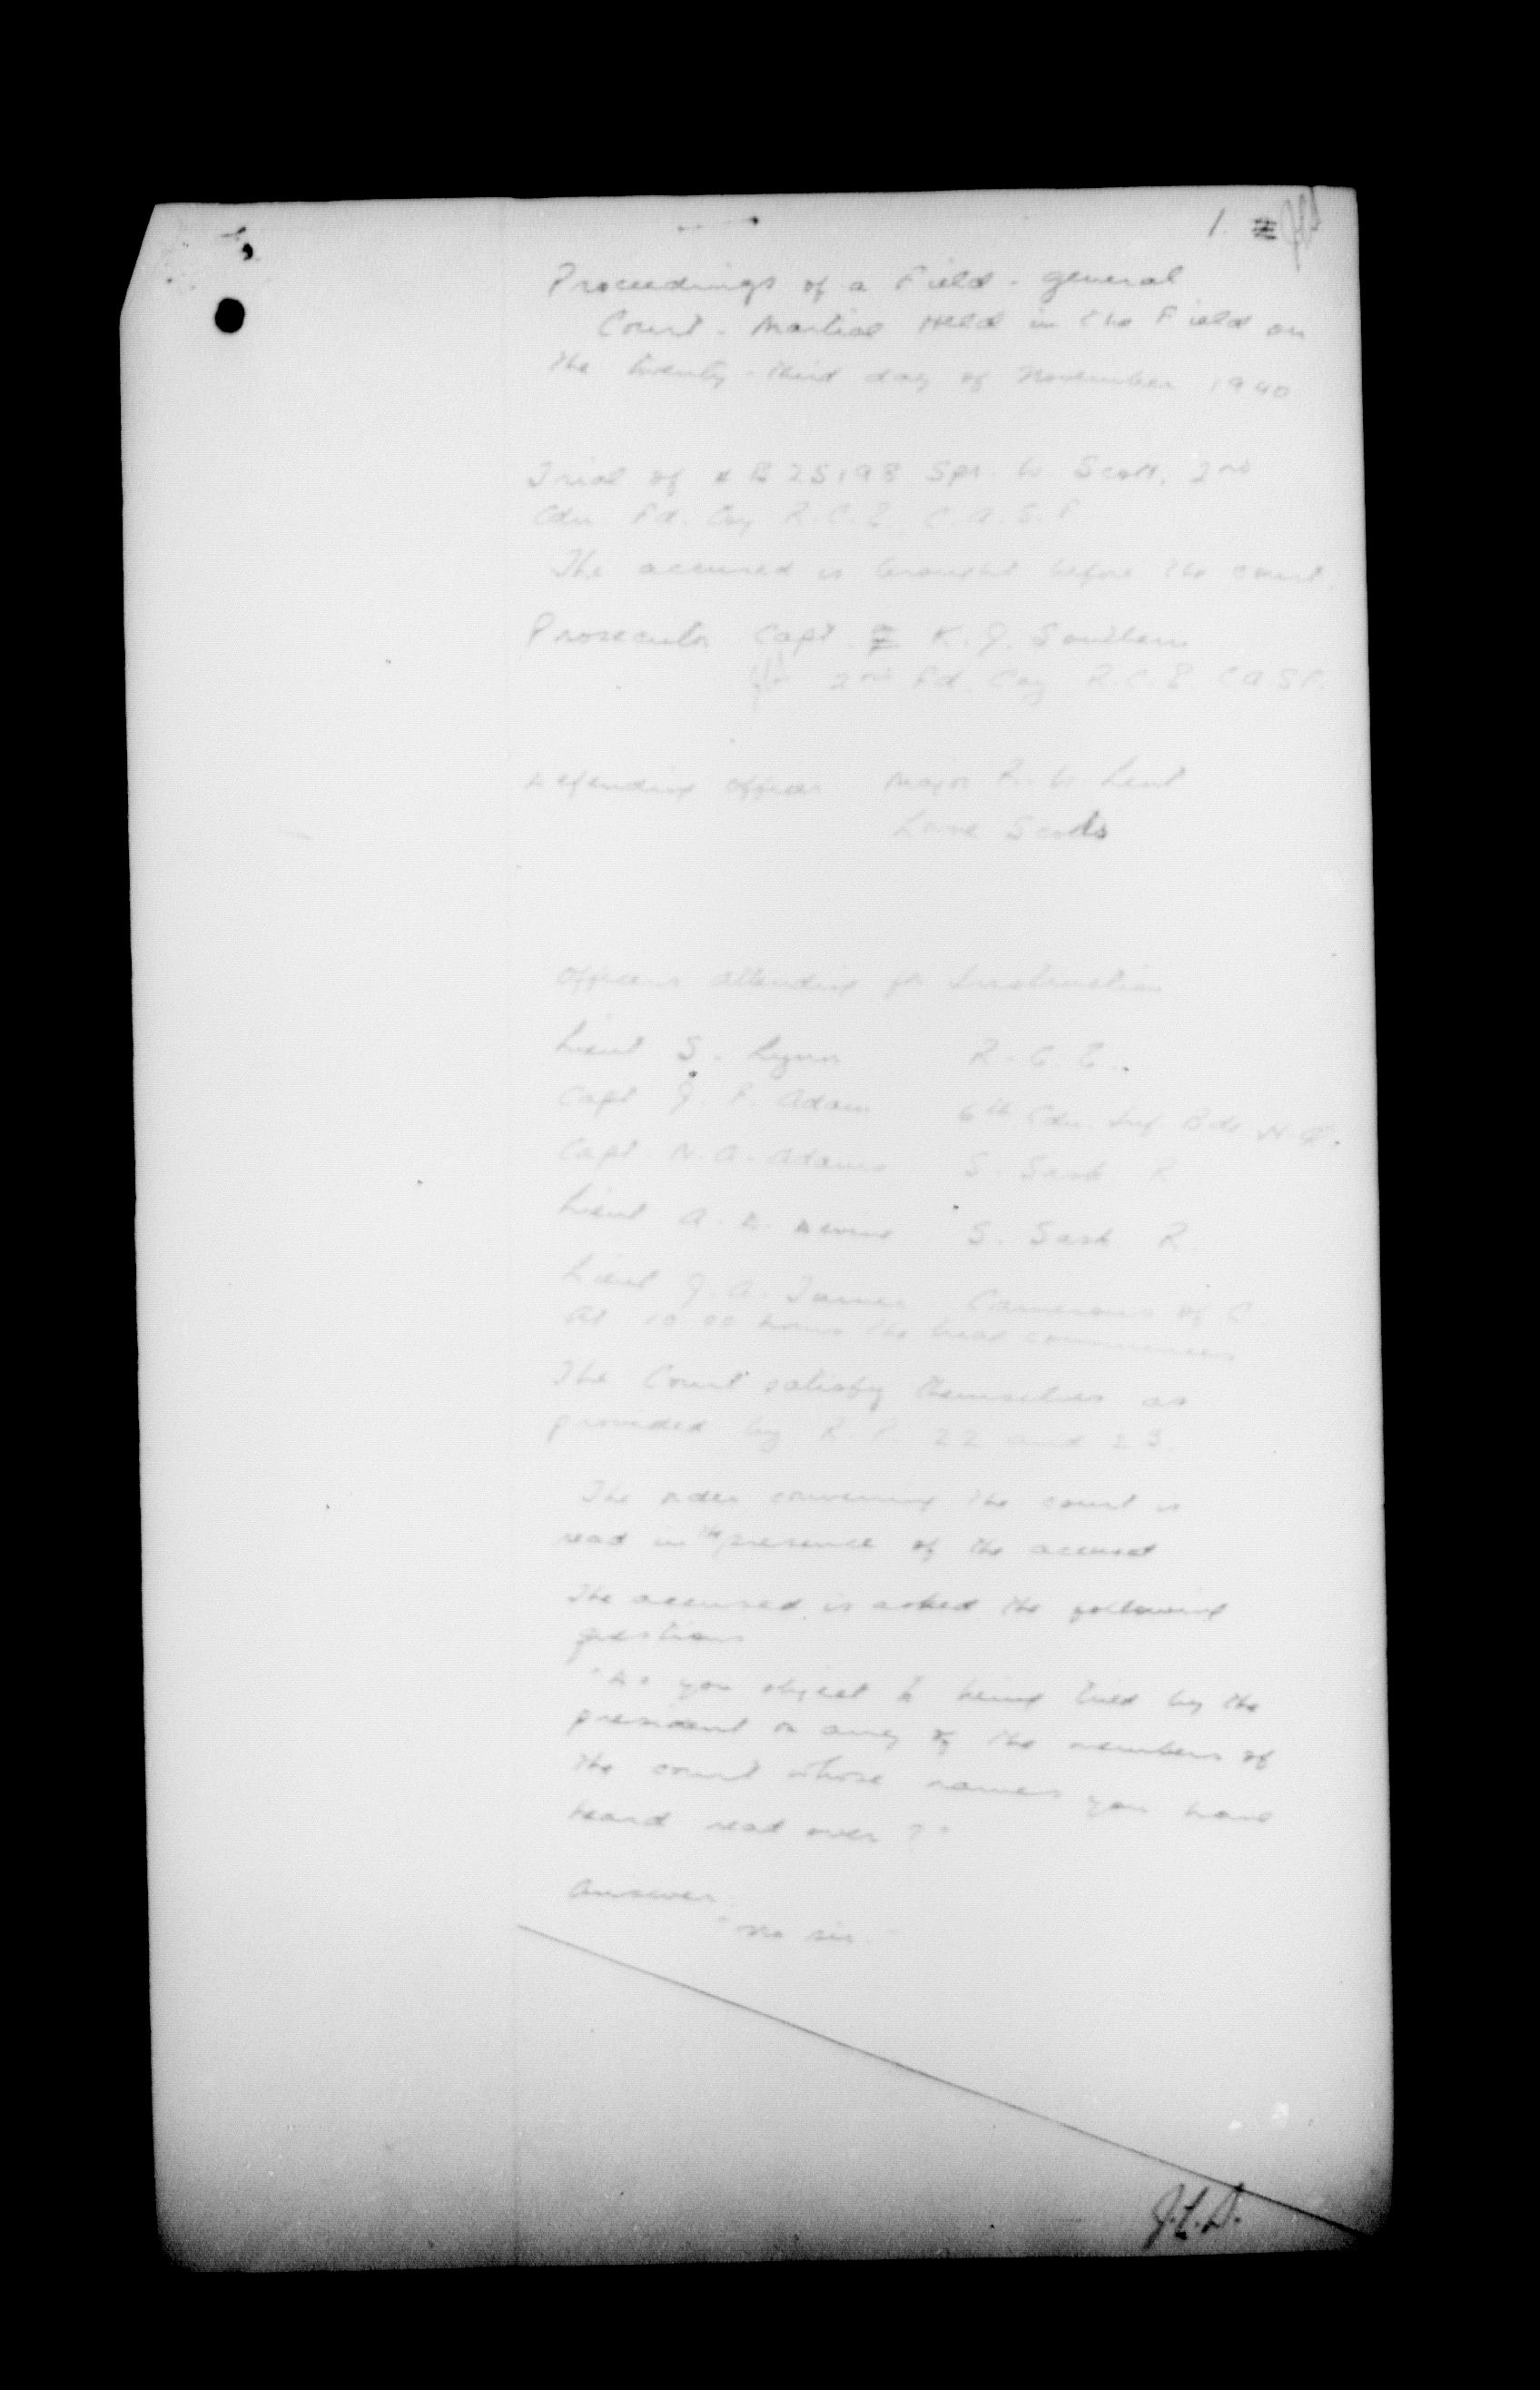 1.
Proceedings of a Field-General
Court-Martial Held in the Field on
the twenty-third day of November 1940
Trial of # B 25198 Spr. W. Scott, 2nd
Cdn. Fd. Coy R.C.E. C.A.S.F
The accused is brought before the court.
Prosecutor Capt. K. J. Southern
2nd Fd. Coy R.C.E. CASF.
Defending Officer Major R. W. Lent
Lorne Scots
Officers attending for Instruction
Lieut S. Lynn R.C.E.
Capt J. P. Adam 6th Cdn. Inf Bde H.Q.
Capt. N. A. Adams S. Sask R
Lieut A. D. Devine S. Sask R.
Lieut J. A. Camerons of C.
At 10.00 hours the trial commences
The Court satisfy themselves as
provided by R.P. 22 and 23.
The order convening the court is
read in the presence of the accused
The accused is asked the following
questions
"Do you object to being tried by the
president or any of the members of
the court whose names you have
heard read over?"
Answer.
"No sir."
J.L.D.